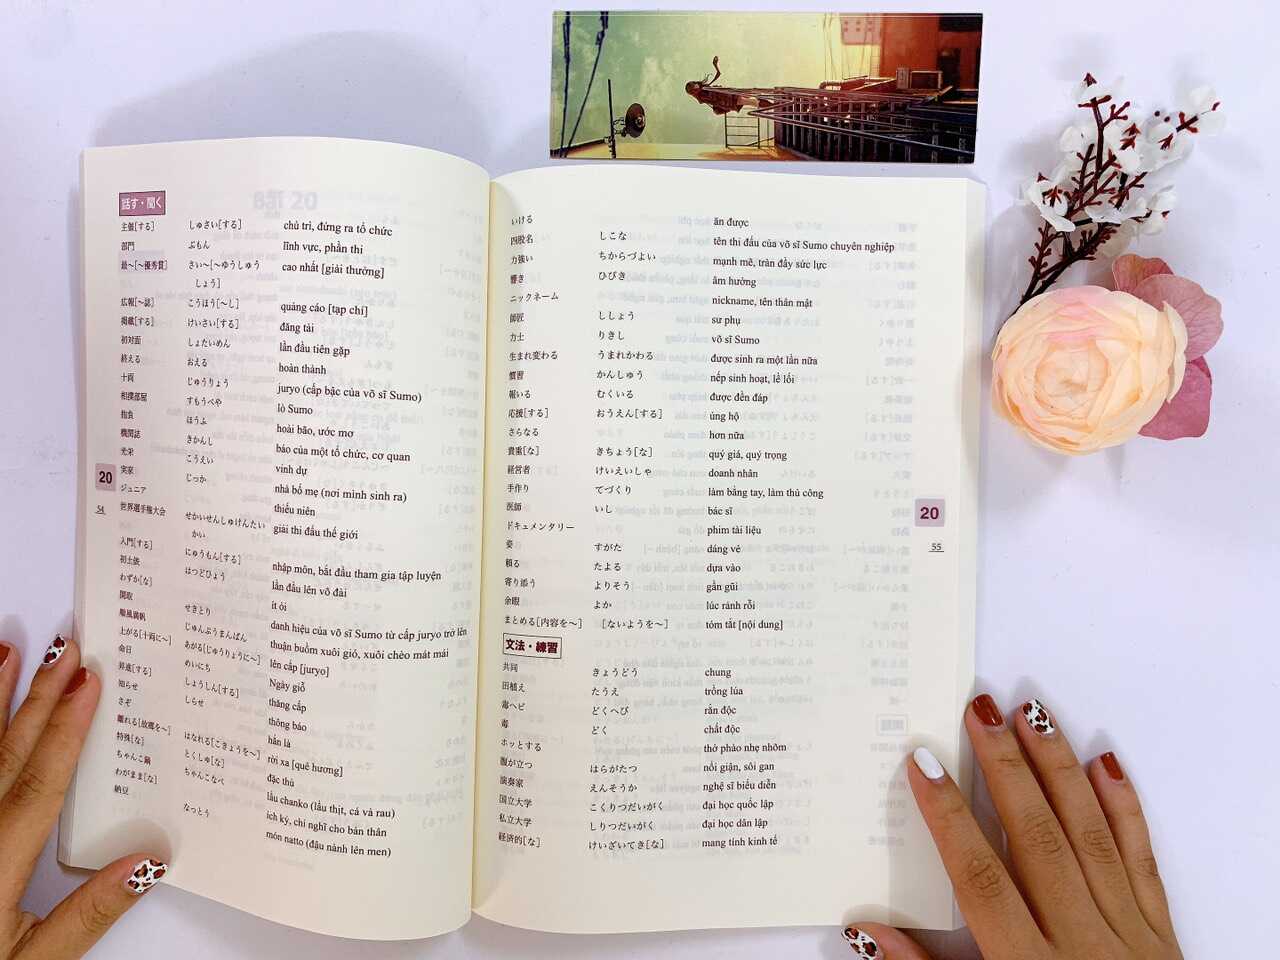 話す・聞く
主催[する] しゅさい[する] chủ trì, đứng ra tổ chức
部門 ぶもん lĩnh vực, phần thi
最〜[〜優秀賞] さい〜[〜ゆうしゅう cao nhất [giải thưởng]
しょう]
広報[〜誌] こうほう[〜し] quảng cáo [tạp chí]
掲載[する] けいさい[する] đăng tải
初対面 しょたいめん lần đầu tiên gặp
終える おえる hoàn thành
十両 じゅうりょう juryo (cấp bậc của võ sĩ Sumo)
相撲部屋 すもうべや lò Sumo
抱負 ほうふ hoài bão, ước mơ
機関誌 きかんし báo của một tổ chức, cơ quan
光栄 こうえい vinh dự
実家 じっか nhà bố mẹ (nơi mình sinh ra)
ジュニア thiếu niên
世界選手権大会 せかいせんしゅけんたい giải thi đấu thế giới
かい
入門[する] にゅうもん[する] nhập môn, bắt đầu tham gia tập luyện
初土俵 はつどひょう lần đầu lên võ đài
わずか[な] ít ỏi
関取 せきとり danh hiệu của võ sĩ Sumo từ cấp juryo trở lên
順風満帆 じゅんぷうまんぱん thuận buồm xuôi gió, xuôi chèo mát mái
上がる[十両に〜] あがる[じゅうりょうに〜] lên cấp [juryo]
命日 めいにち Ngày giỗ
昇進[する] しょうしん[する] thăng cấp
知らせ しらせ thông báo
さぞ hẳn là
離れる[故郷を〜] はなれる[こきょうを〜] rời xa [quê hương]
特殊[な] とくしゅ[な] đặc thù
ちゃんこ鍋 ちゃんこなべ lẩu chanko (lẩu thịt, cá và rau)
わがまま[な] ích kỷ, chỉ nghĩ cho bản thân
納豆 なっとう món natto (đậu nành lên men)
20
54
いける ăn được
四股名 しこな tên thi đấu của võ sĩ Sumo chuyên nghiệp
力強い ちからづよい mạnh mẽ, tràn đầy sức lực
響き ひびき âm hưởng
ニックネーム nickname, tên thân mật
師匠 ししょう sư phụ
力士 りきし võ sĩ Sumo
生まれ変わる うまれかわる được sinh ra một lần nữa
慣習 かんしゅう nếp sinh hoạt, lề lối
報いる むくいる được đền đáp
応援[する] おうえん[する] ủng hộ
さらなる hơn nữa
貴重[な] きちょう[な] quý giá, quý trọng
経営者 けいえいしゃ doanh nhân
手作り てづくり làm bằng tay, làm thủ công
医師 いし bác sĩ
ドキュメンタリー phim tài liệu
姿 すがた dáng vẻ
頼る たよる dựa vào
寄り添う よりそう gần gũi
余暇 よか lúc rảnh rỗi
まとめる[内容を〜] [ないようを〜] tóm tắt [nội dung]
文法・練習
共同 きょうどう chung
田植え たうえ trồng lúa
毒ヘビ どくへび rắn độc
毒 どく chất độc
ホッとする thở phào nhẹ nhõm
腹が立つ はらがたつ nổi giận, sôi gan
演奏家 えんそうか nghệ sĩ biểu diễn
国立大学 こくりつだいがく đại học quốc lập
私立大学 しりつだいがく đại học dân lập
経済的[な] けいざいてき[な] mang tính kinh tế
20
55